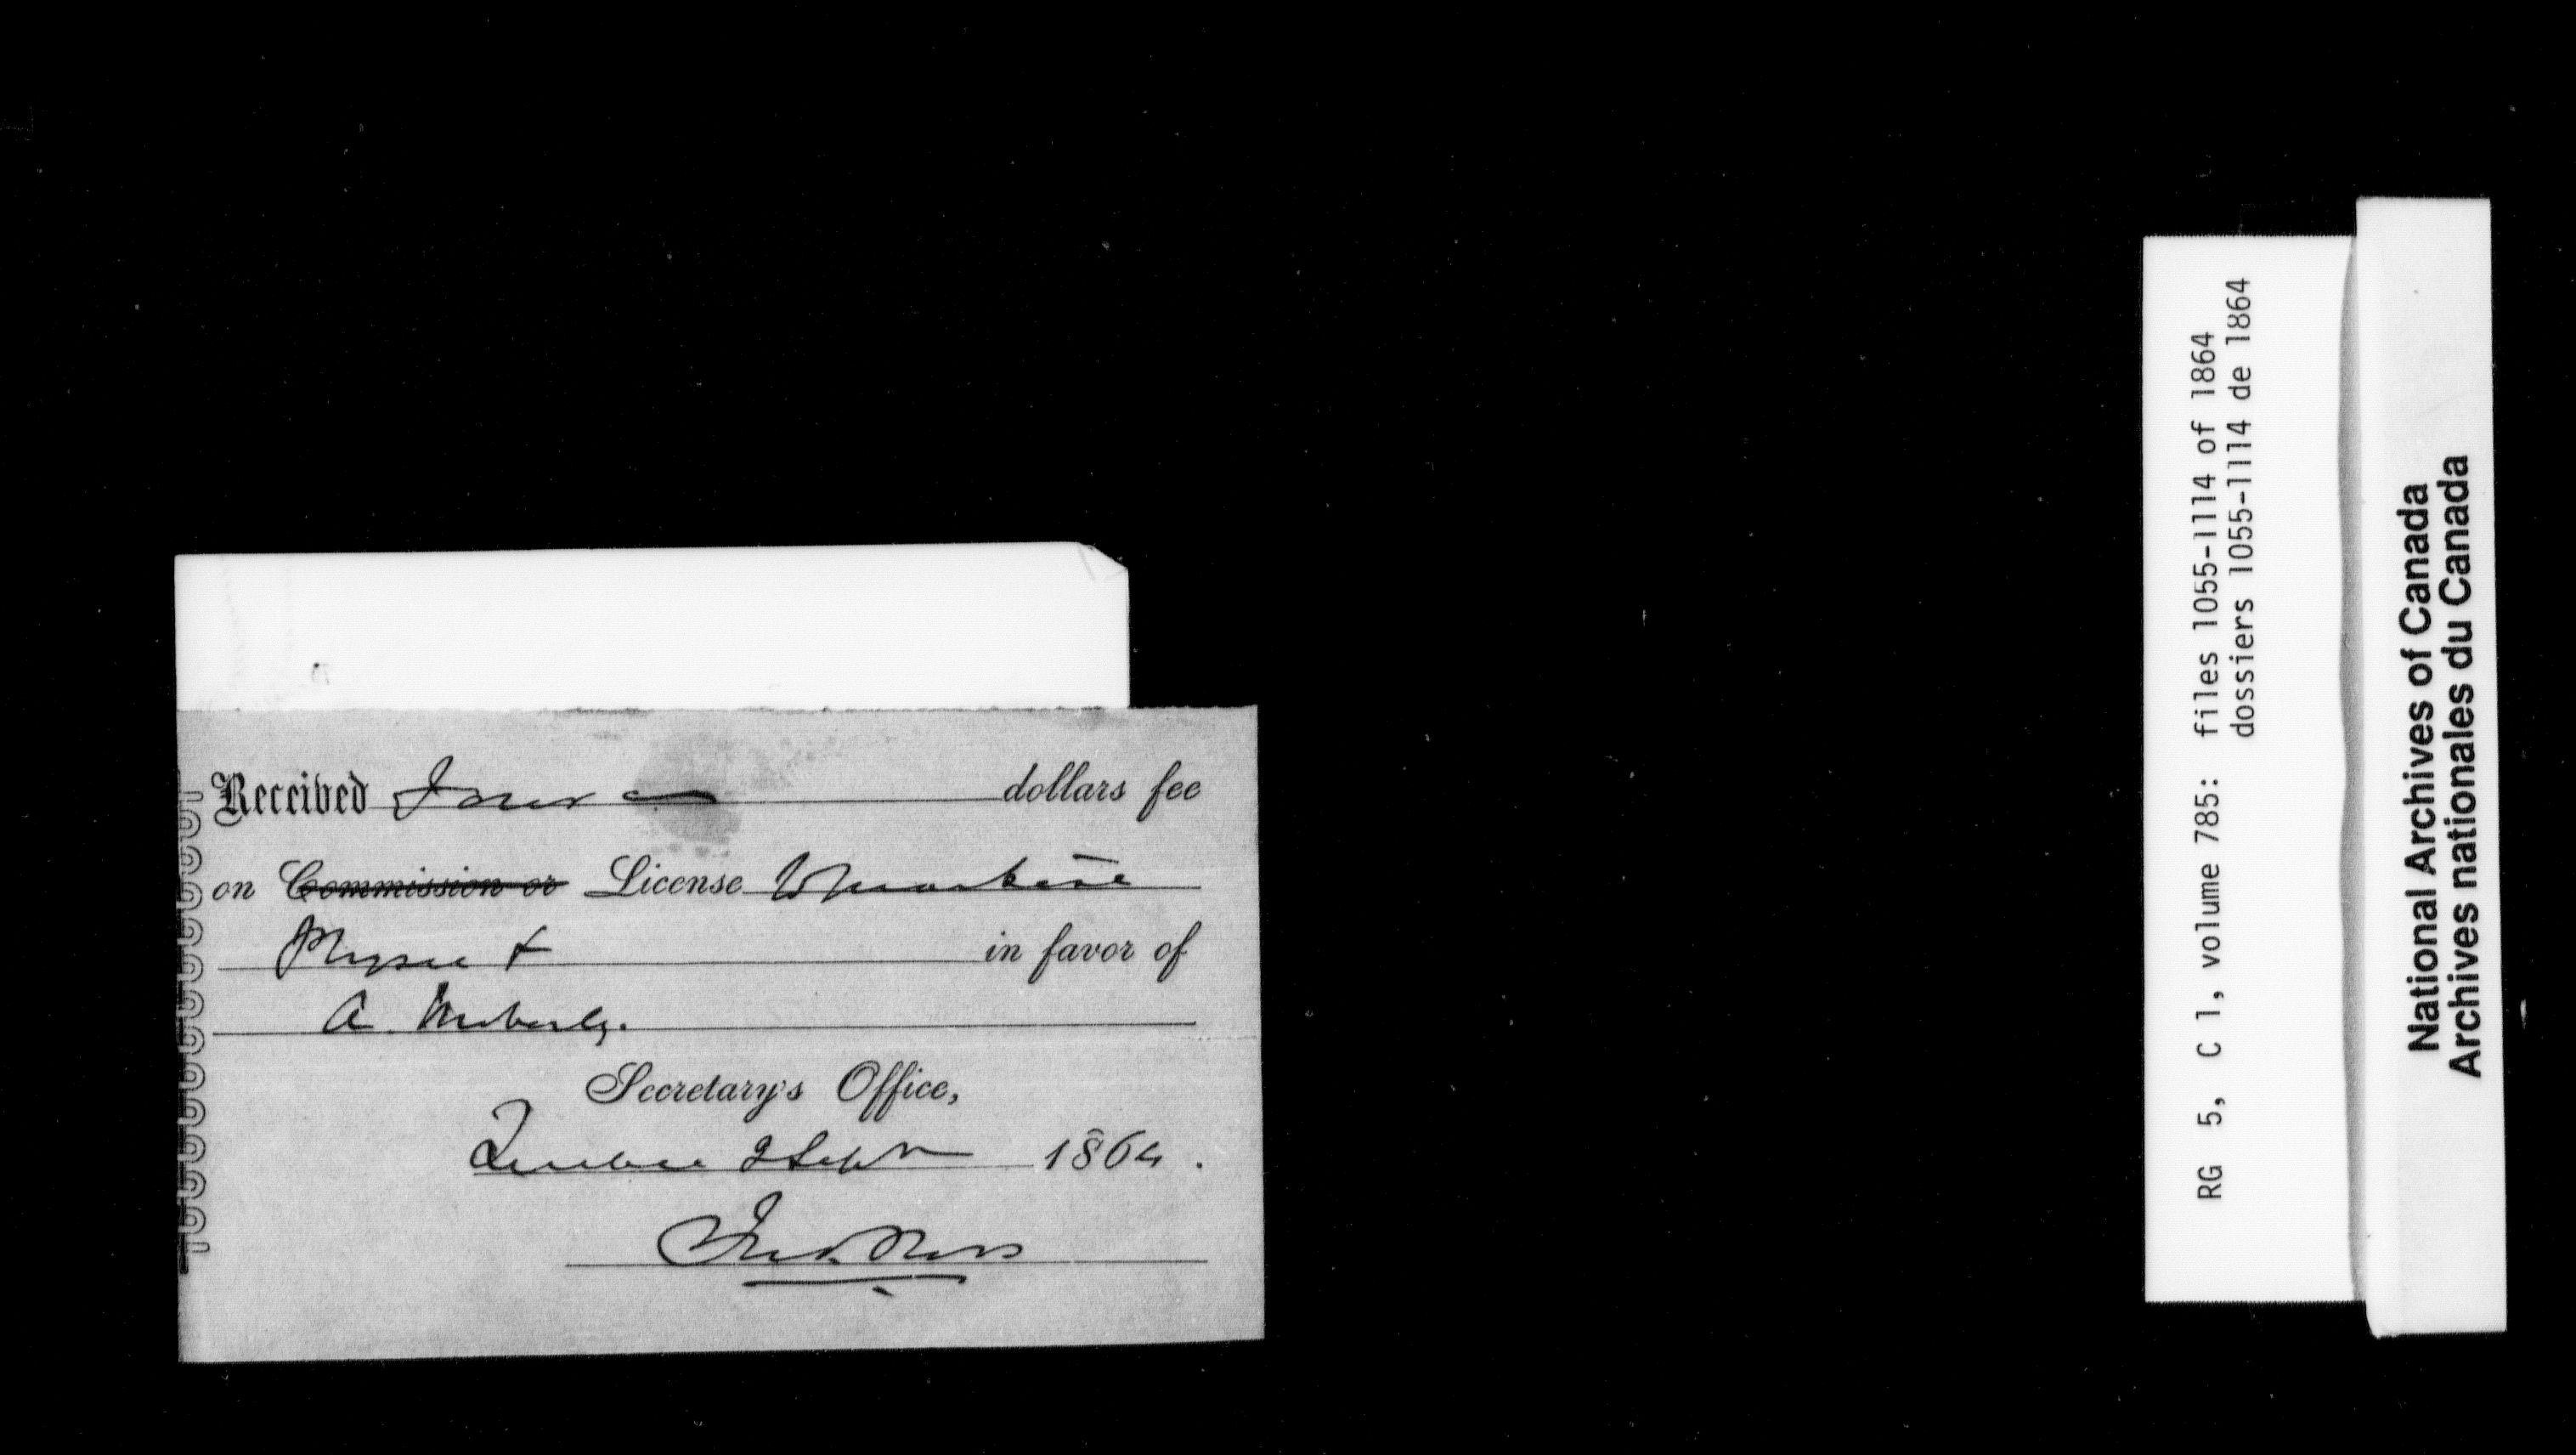 Received Four dollars fee
on Commission or License to practice
Physic & in favor of
A. Moberly.
Secretary's Office,
Quebec 2 Sept 1864.
RG 5, C 1, volume 785: files 1055-1114 of 1864
dossiers 1055-1114 de 1864
National Archives of Canada
Archives nationales du Canada